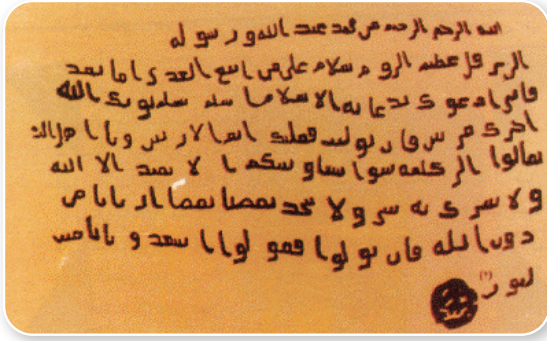 بسم الله الرحمن الرحيم من محمد عبد الله ورسوله
الى هرقل عظيم الروم سلام على من اتبع الهدى اما بعد
فانى ادعوك بدعاية الاسلام اسلم تسلم يوتك الله
اجرك مرتين فان توليت فعليك اثم الاريسيين ويا اهل
تعالوا الى كلمة سوا بيننا وبينكم الا نعبد الا الله
ولا نشرك به ولا يتخذ بعضنا بعضا اربابا من
دون الله فان تولوا فقولوا اشهدوا بانا مس
لمون (٢)